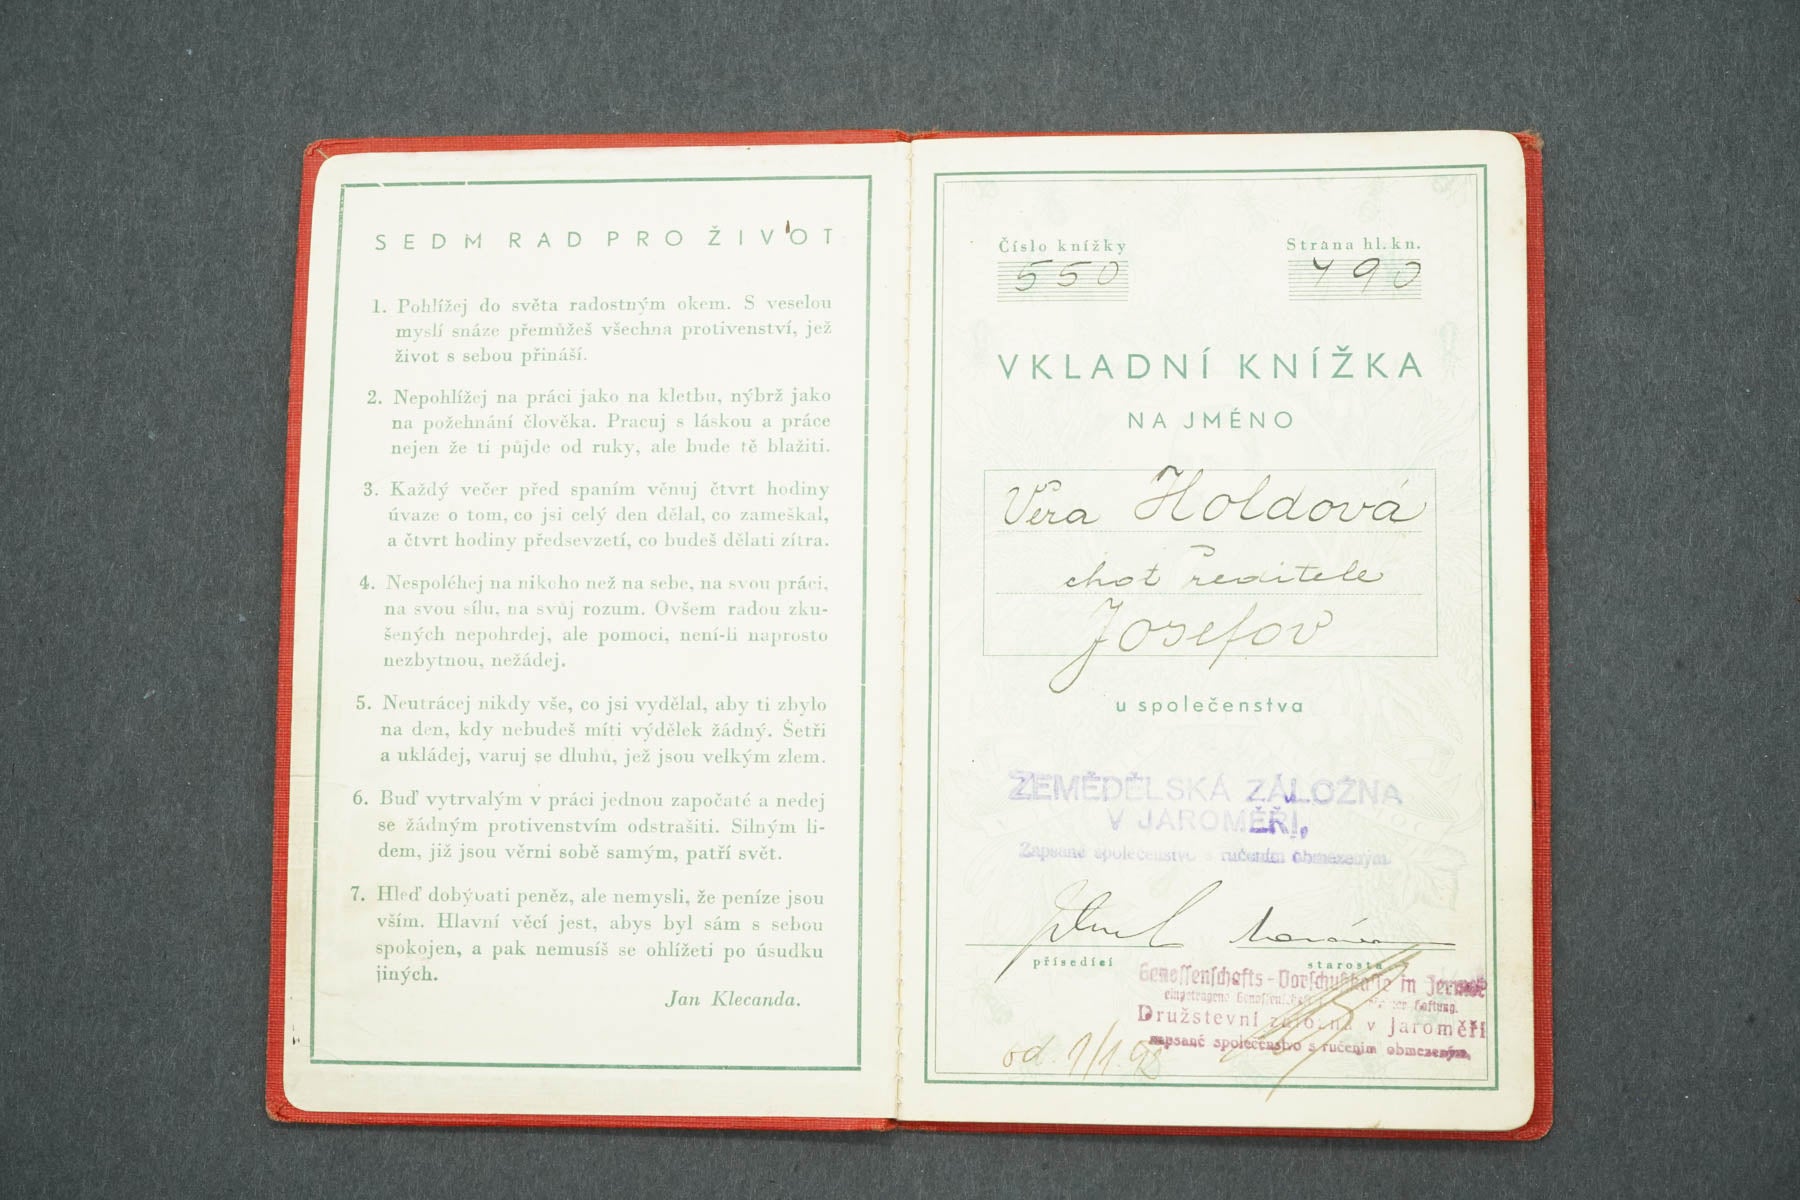 SEDM RAD PRO ŽIVOT
1. Pohlížej do světa radostným okem. S veselou
myslí snáze přemůžeš všechna protivenství, jež
život s sebou přináší.
2. Nepohlížej na práci jako na kletbu, nýbrž jako
na požehnání člověka. Pracuj s láskou a práce
nejen že ti půjde od ruky, ale bude tě blažiti.
3. Každý večer před spaním věnuj čtvrt hodiny
úvaze o tom, co jsi celý den dělal, co zameškal,
a čtvrt hodiny předsevzetí, co budeš dělati zítra.
4. Nespoléhej na nikoho než na sebe, na svou práci,
na svou sílu, na svůj rozum. Ovšem radou zku-
šených nepohrdej, ale pomoci, není-li naprosto
nezbytnou, nežádej.
5. Neutrácej nikdy vše, co jsi vydělal, aby ti zbylo
na den, kdy nebudeš míti výdělek žádný. Šetři
a ukládej, varuj se dluhů, jež jsou velkým zlem.
6. Buď vytrvalým v práci jednou započaté a nedej
se žádným protivenstvím odstrašiti. Silným li-
dem, již jsou věrni sobě samým, patří svět.
7. Hleď dobývati peněz, ale nemysli, že peníze jsou
vším. Hlavní věcí jest, abys byl sám s sebou
spokojen, a pak nemusíš se ohlížeti po úsudku
jiných.
Jan Klecanda.
Číslo knížky
550
Strana hl. kn.
490
VKLADNÍ KNÍŽKA
NA JMÉNO
Věra Holdová
choť ředitele
Josefov
u společenstva
ZEMĚDĚLSKÁ ZÁLOŽNA
V JAROMĚŘI,
Zapsané společenstvo s ručením obmezeným.
přísedící
starosta
Genossenschafts-Vorschußkasse in Jermer
eingetragene Genossenschaft Haftung.
Družstevní záložna v Jaroměři
zapsané společenstvo s ručením obmezeným.
od 1/1 42